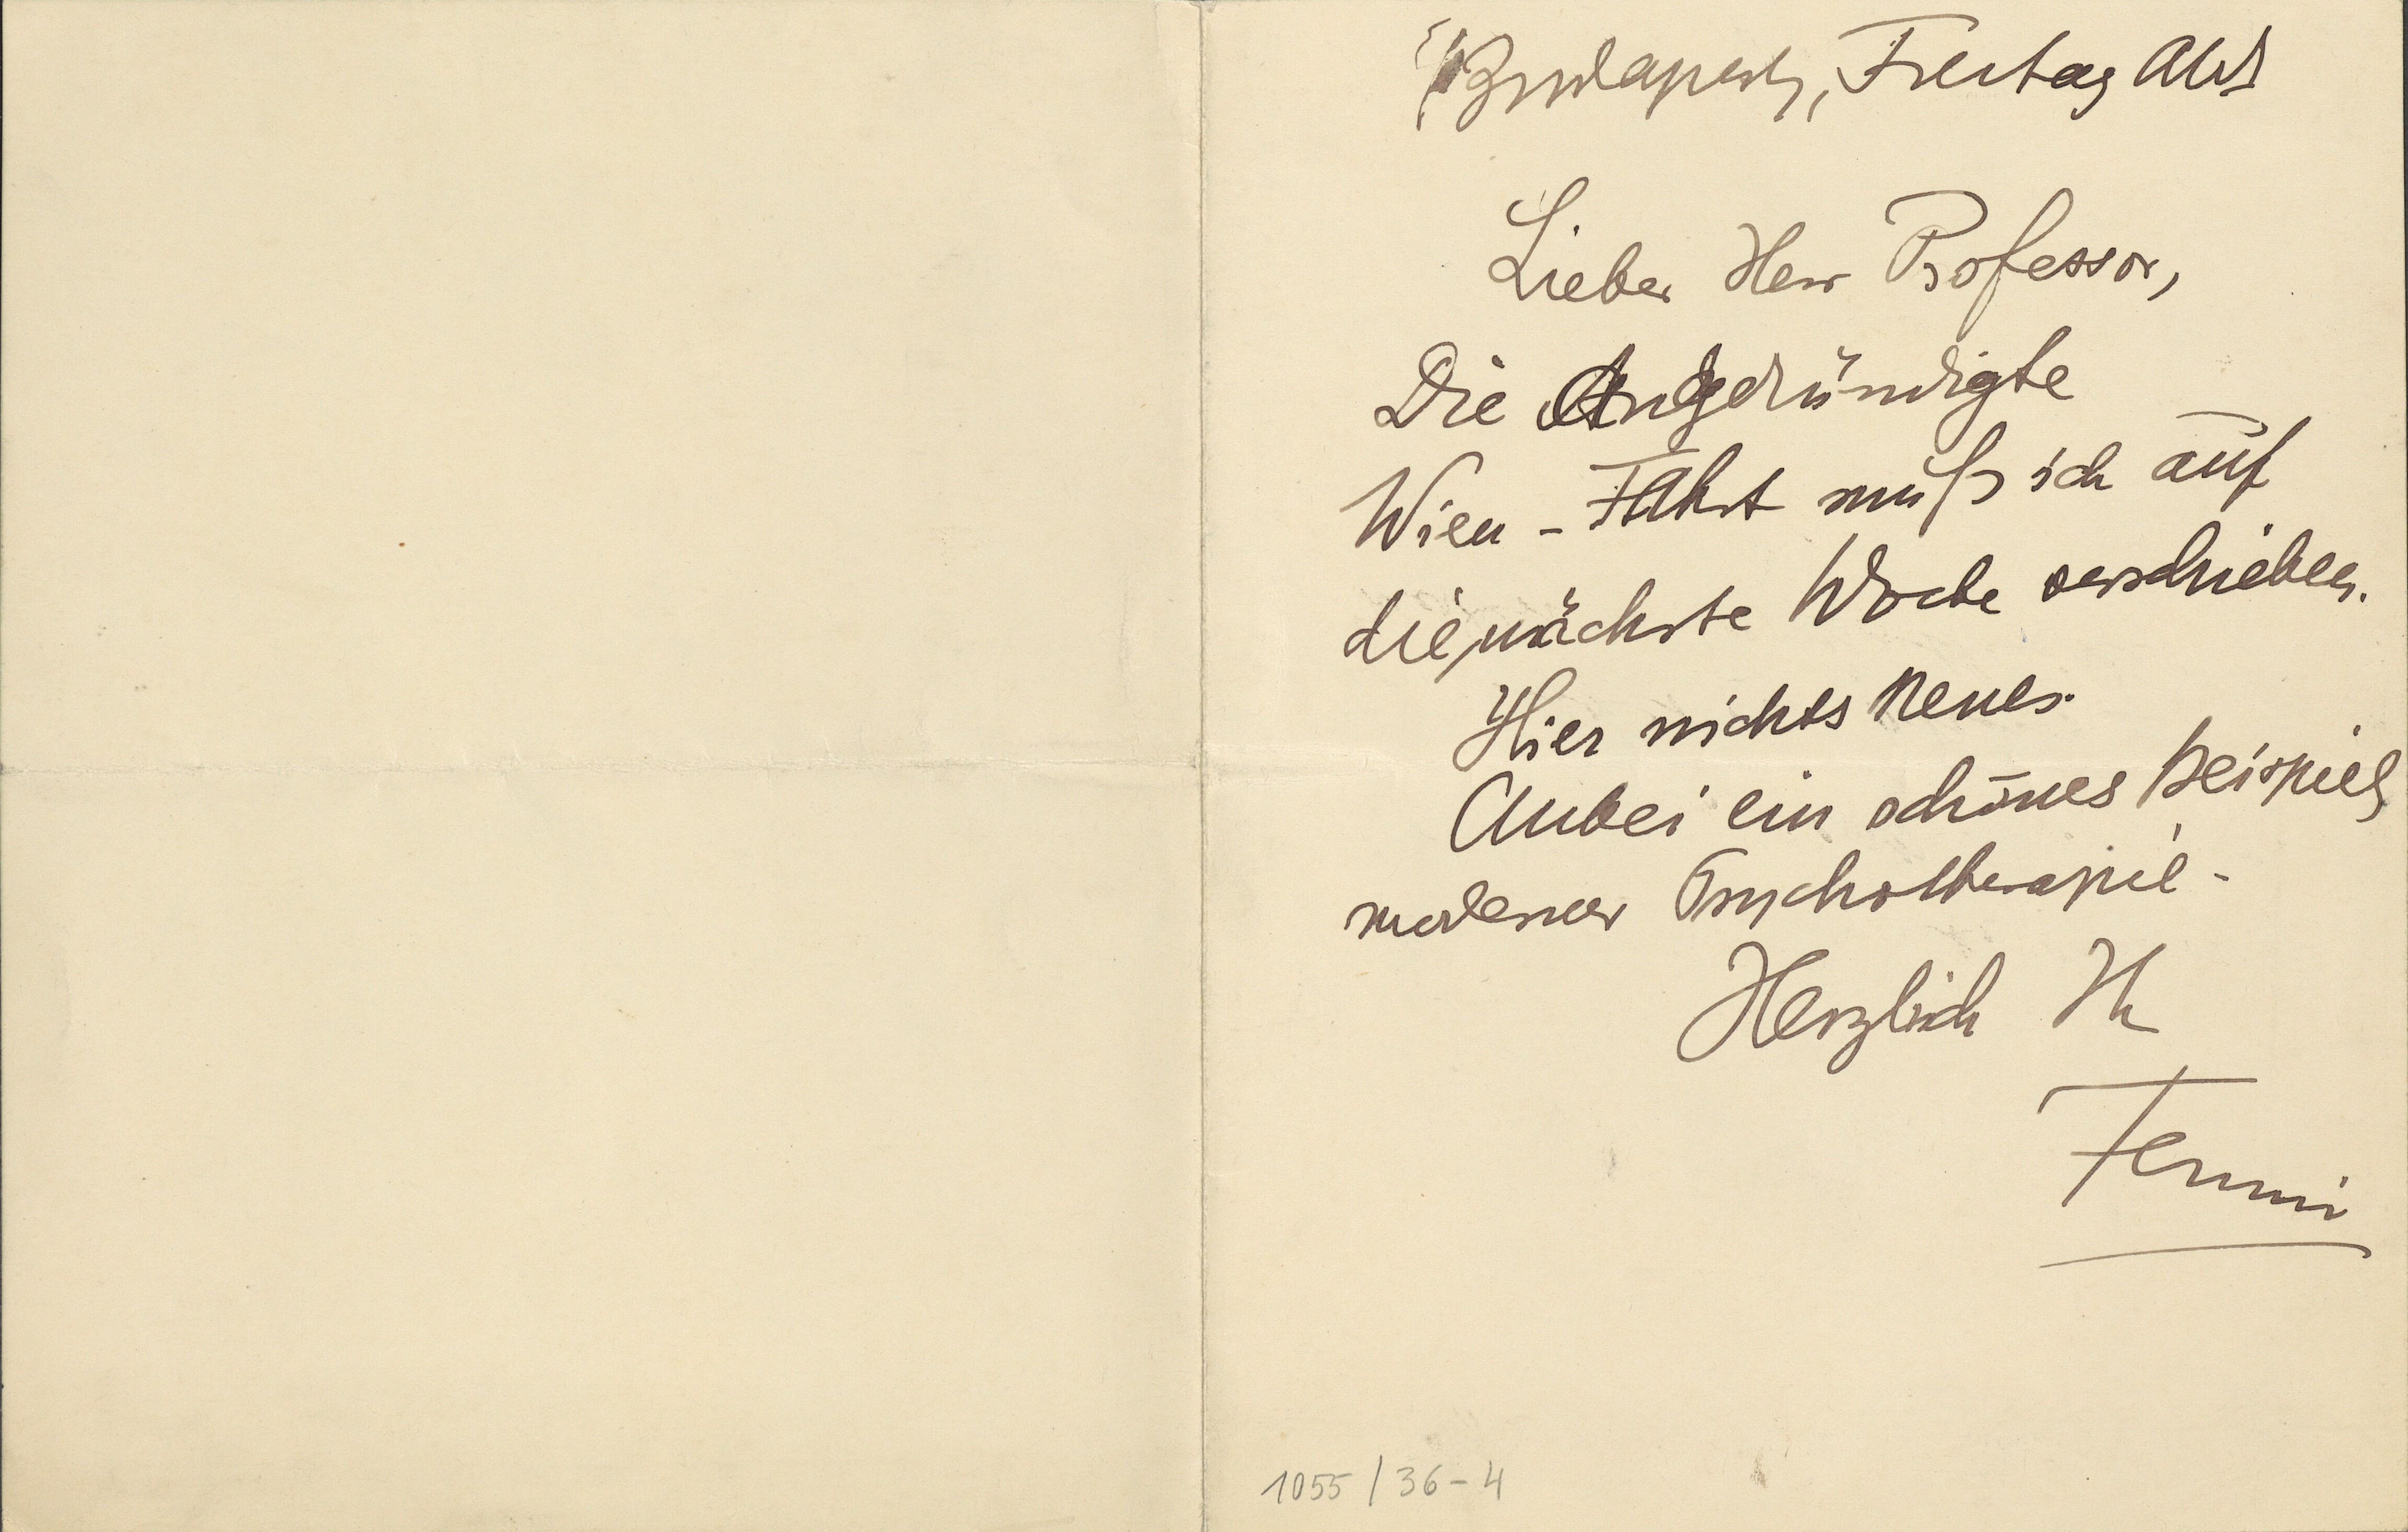 Budapest, Freitag Abd
Lieber Herr Professor,
Die Angekündigte
Wien-Fahrt muß ich auf
die nächste Woche verschieben.
Hier nichts Neues.
Anbei ein schönes Beispiel
moderner Psychotherapie.
Herzlich Ihr
Ferenczi
1055/36-4